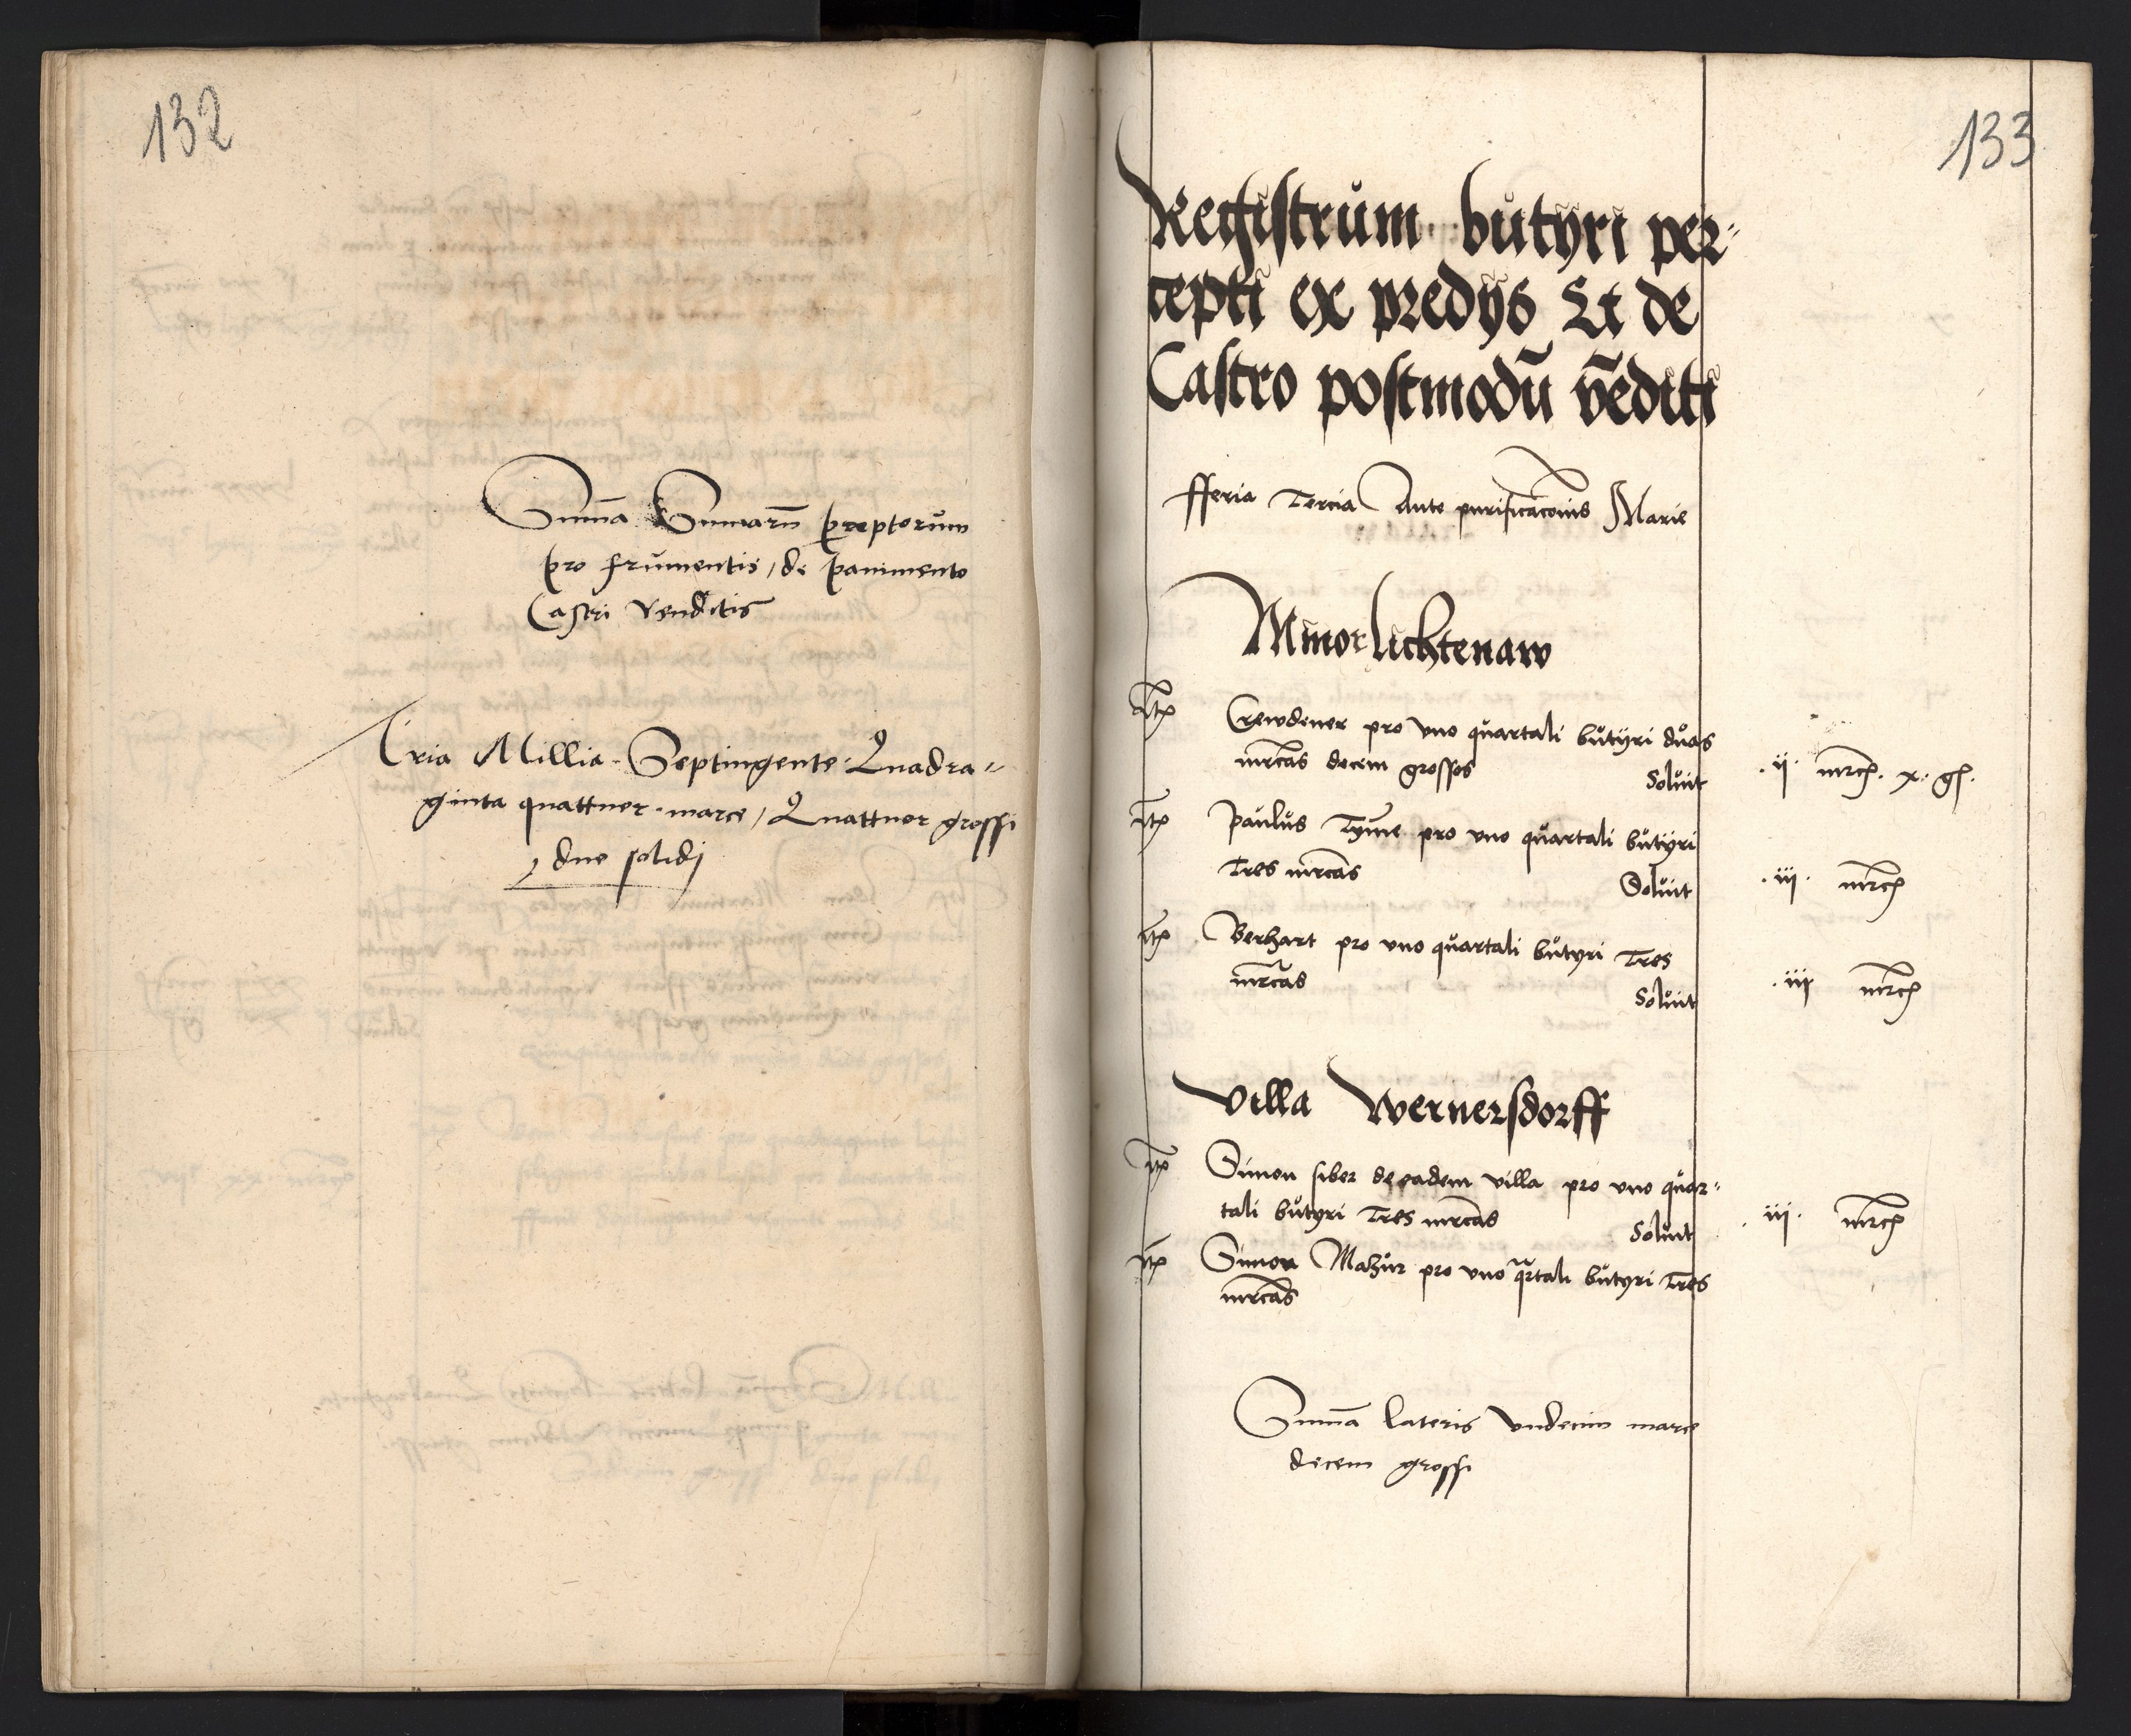 132
Sum̄a Sum̄arū p̱ceptorum
pro frumentis / de pavimento
Castri venditis
Tria Millia Septingente Quadra-
ginta quattuor marce / Quattuor grossi
due solidi
133
Registrum butyri per-
cepti ex predijs Et de
Castro postmodū vēditi
fferia Tercia Ante purificac̄onis Marie
Minor lichtenaw
It̄
Crewdener pro vno quartali butyri duas
mr̄cas decem grossos
Soluit
.ij. mr̄cę. x. gꝭ.
It̄
Paulus Tyme pro vno quartali butyri
Tres mr̄cas
Soluit
.iij. mr̄cę
It̄
Berhart pro vno quartali butyri Tres
mr̄cas
Soluit
.iij mr̄cę
Villa Wernersdorff
It̄
Simon siber de eadem villa pro vno quar-
tali butyri Tres mr̄cas
Soluit
.iij. mr̄cę
It̄
Simon Mazur pro vno qr̄tali butyri Tres
mr̄cas
Sum̄a lateris vndecim marce
decem grossi